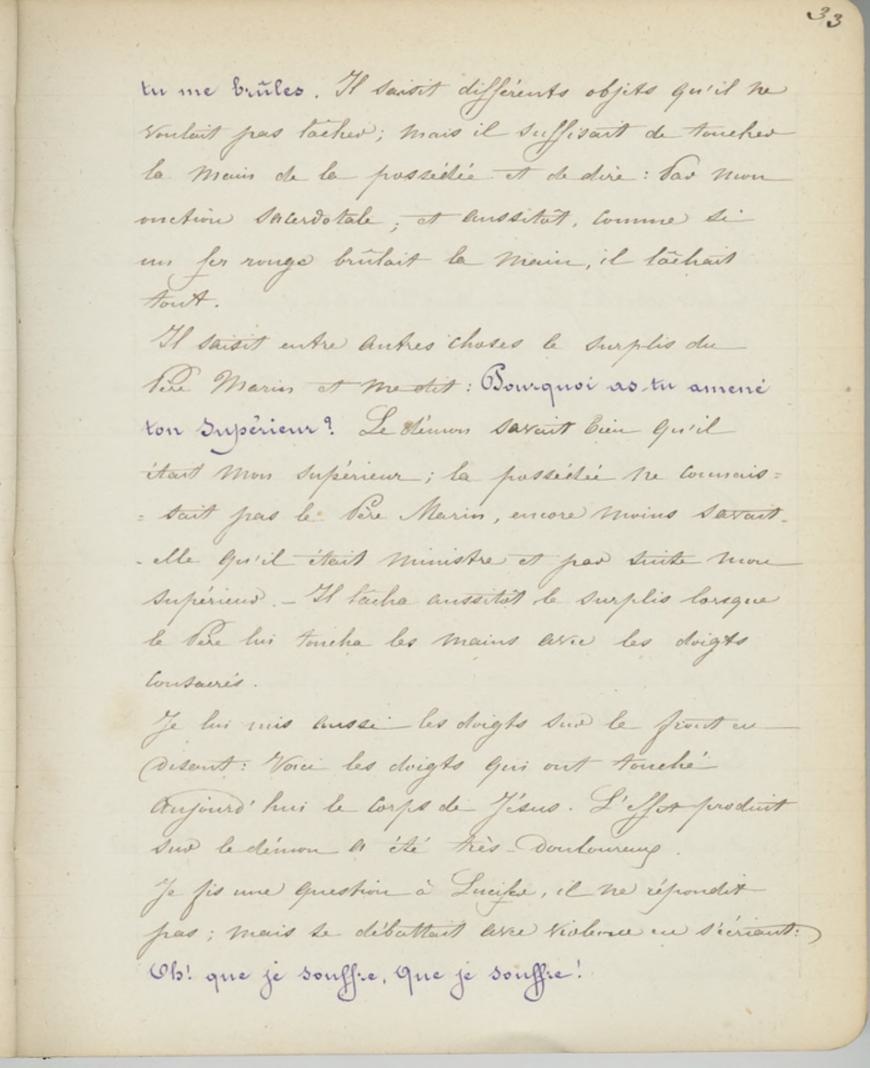 33
tu me brûles. Il saisit différents objets qu'il ne
voulait pas lâcher; mais il suffisait de toucher
la main de la possédée et de dire : Par mon
onction sacerdotale, et aussitôt, comme si
un fer rouge brûlait la main, il lâchait
tout.
Il saisit entre autres choses le surplis du
Père Marin et me dit : Pourquoi as-tu amené
ton supérieur? Le démon savait bien qu'il
était mon supérieur; la possédée ne connais=
= sait pas le Père Marin, encore moins savait-
-elle qu'il était ministre et par suite mon
supérieur. - Il lâcha aussitôt le surplis lorsque
le Père lui toucha les mains avec les doigts
consacrés.
Je lui mis aussi les doigts sur le front en
disant : Voici les doigts qui ont touché
aujourd'hui le corps de Jésus. L'effet produit
sur le démon a été très-douloureux.
Je fis une question à Lucifer, il ne répondit
pas; mais se débattait avec violence en s'écriant:
Oh! que je souffre, que je souffre!